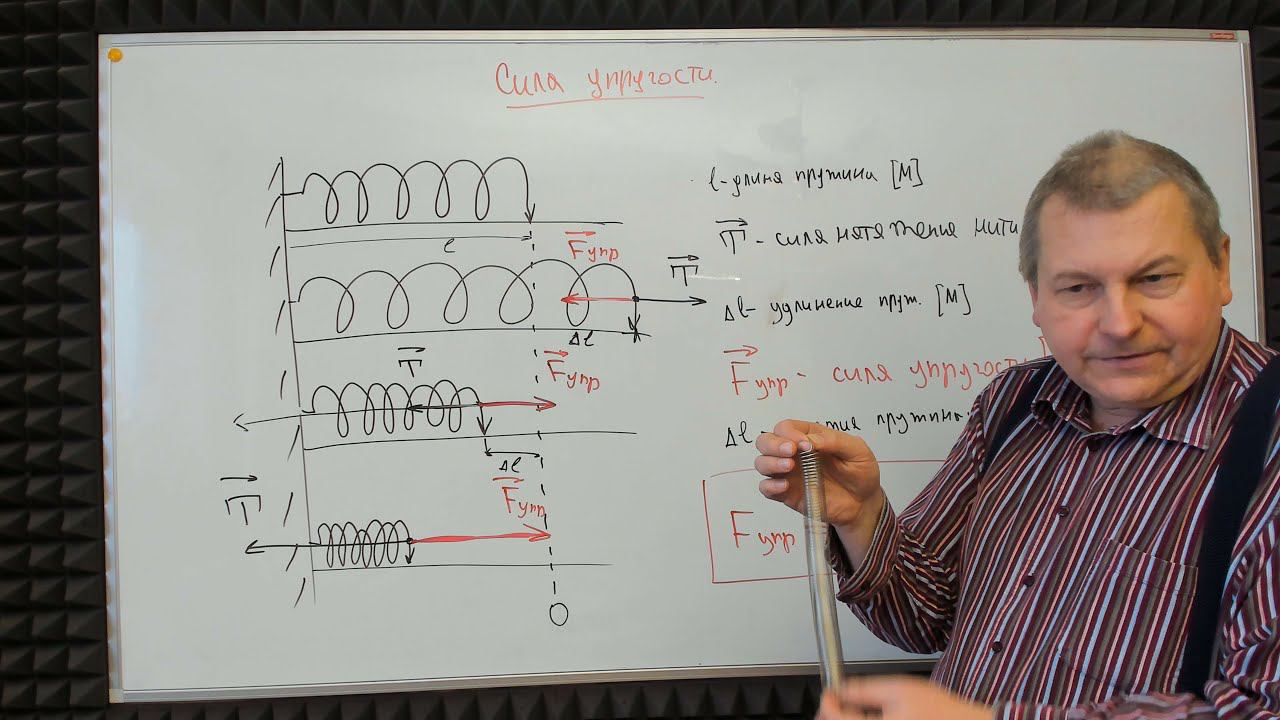 Сила упругости.
l
Fупр
T
Δl
T
Fупр
Δl
T
Fупр
O
l - длина пружины [М]
T - сила натяжения нити
Δl - удлинение пруж. [М]
Fупр - сила упругости
Δl
пружины
Fупр